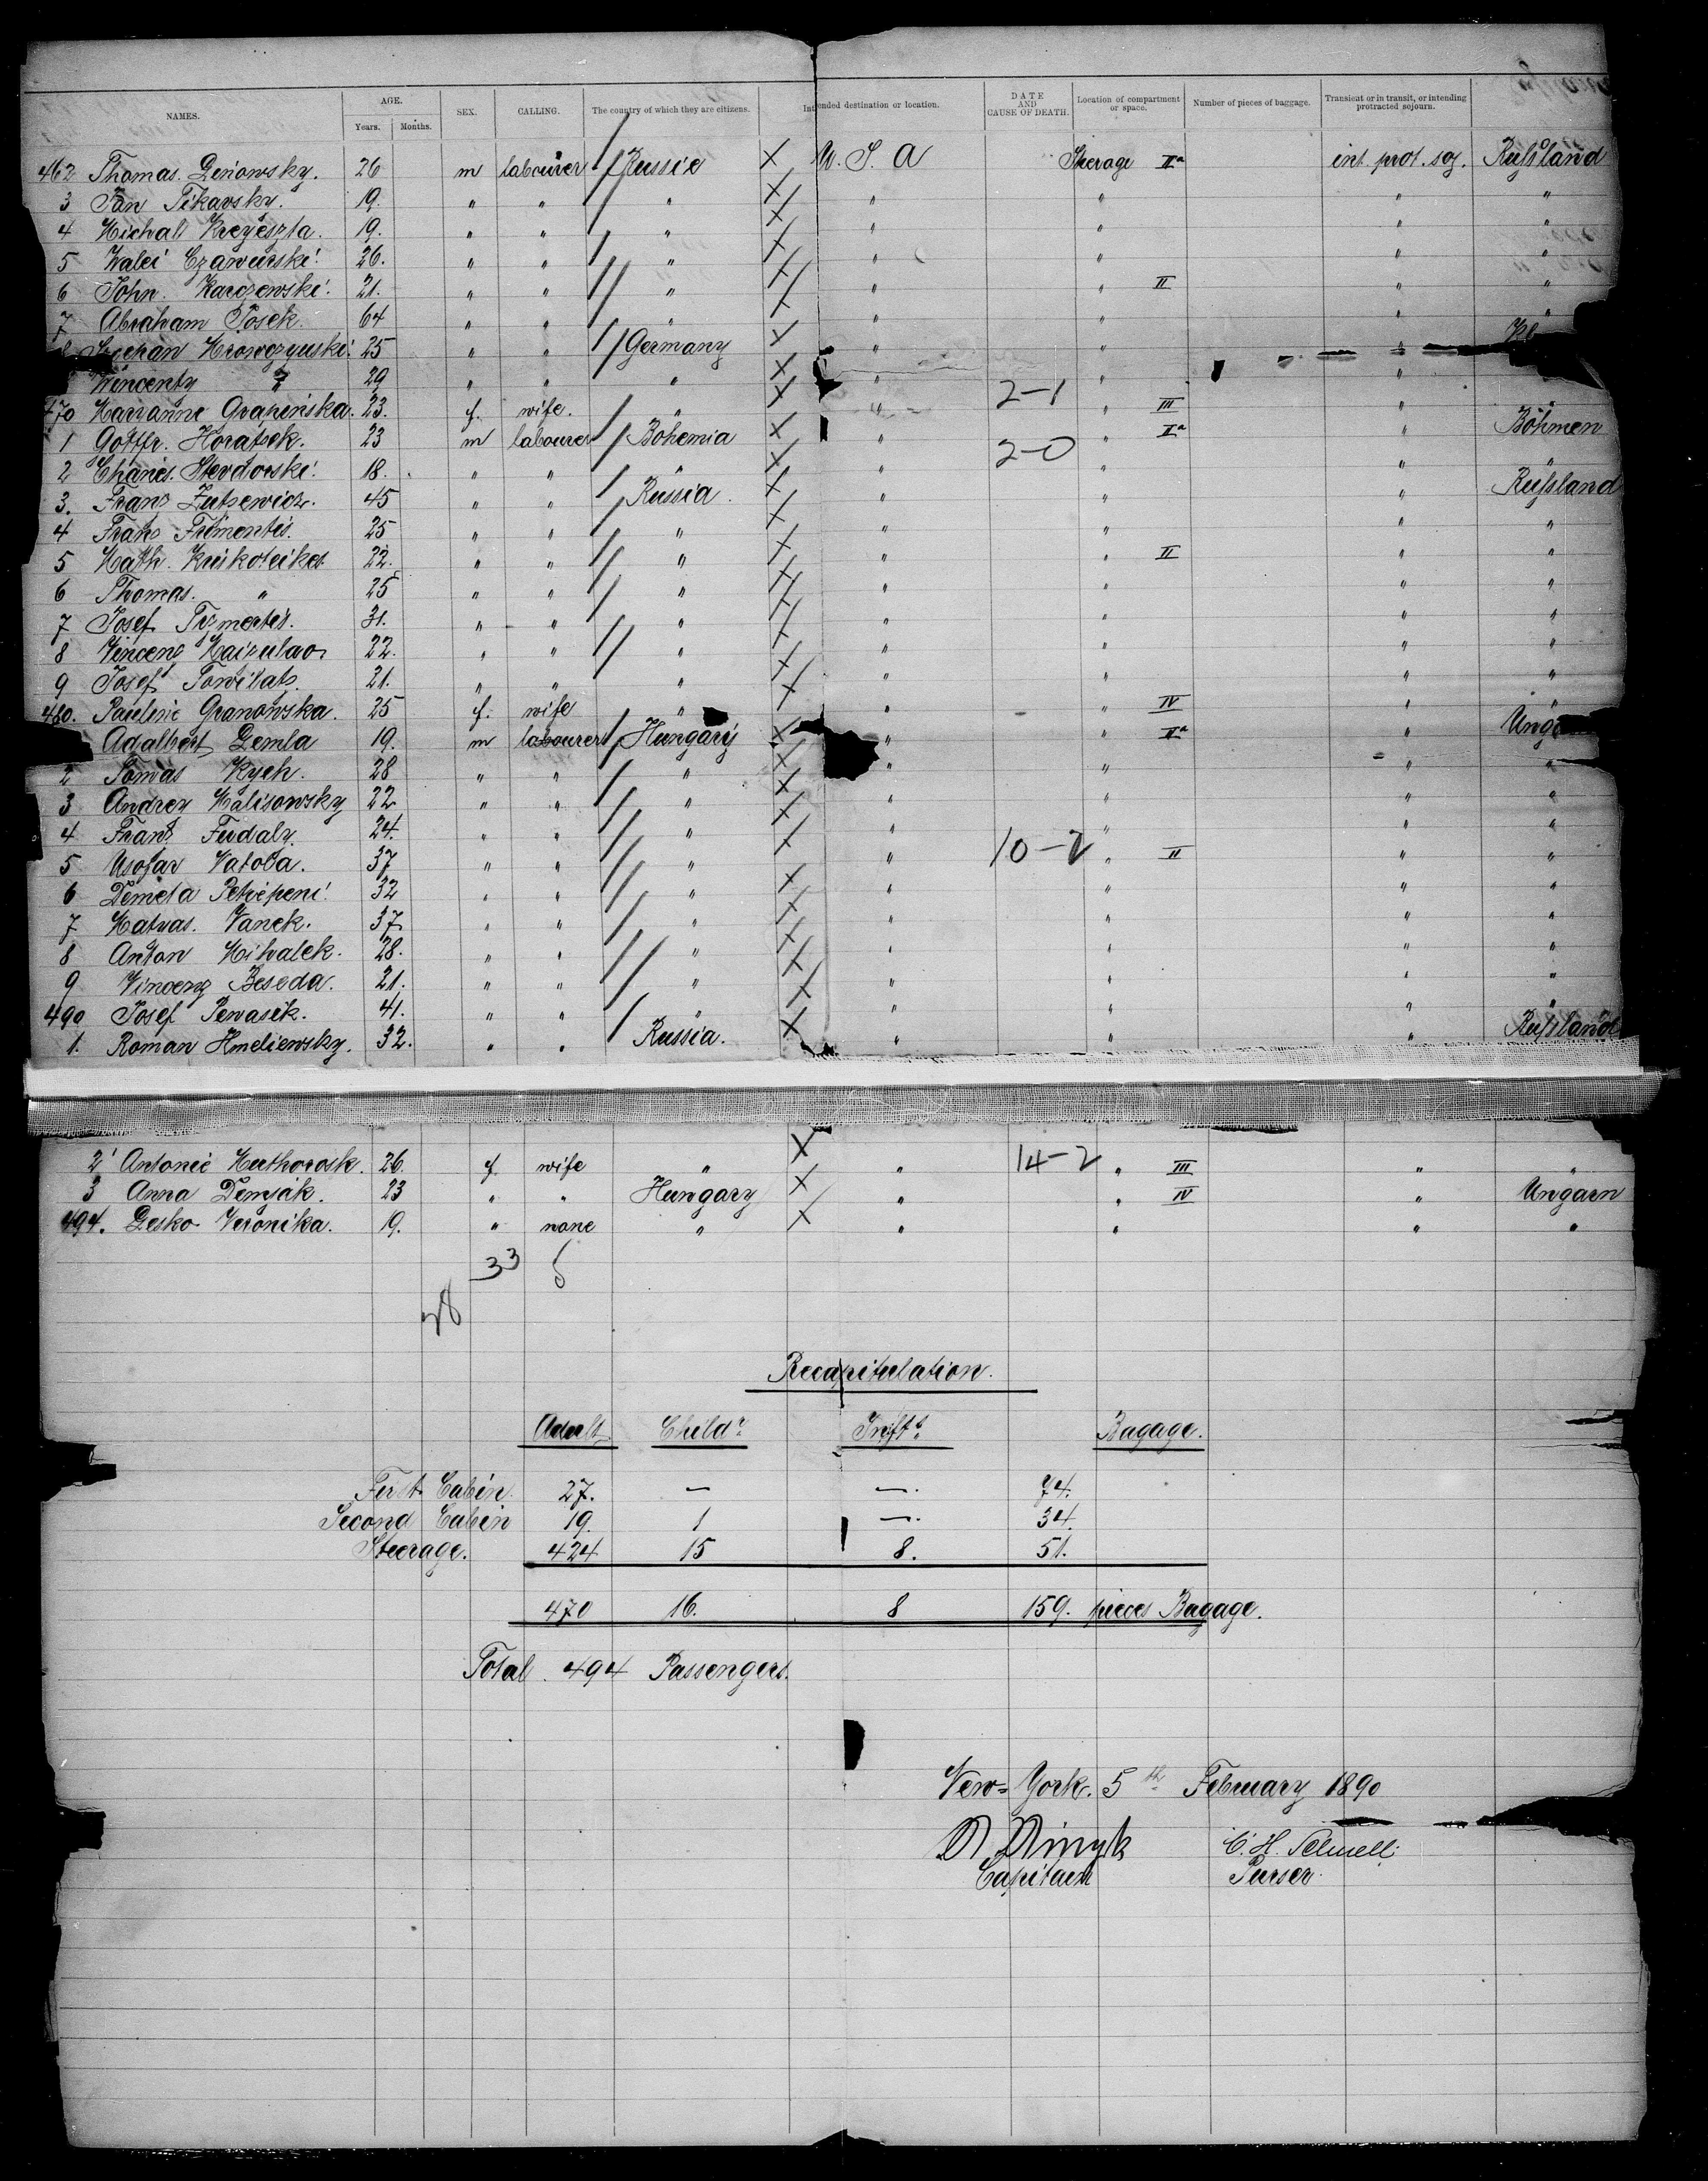 NAMES. AGE. Years. Months. SEX. CALLING. The country of which they are citizens. Intended destination or location. DATE AND CAUSE OF DEATH. Location of compartment or space. Number of pieces of baggage. Transient or in transit, or intending protracted sojourn.
462 Thomas. Geniowsky. 26 m labourer Russia X U. S. A Steerage IIa int. prot. soj. Rußland
3 Jan Pikarsky. 19. " " " X " " " "
4 Michall 19. " " " X " " " "
5 Walei Czawurski. 26. " " " X " " " "
6 John. Karczewski. 21. " " " X " " II " "
7 Abraham Josek. 64 " " " X " " " "
Hrowczynski. 25 " " Germany X " " "
Wincenty " 29 " " " X " 2-1 " "
470 Marianne Grapinska. 23. f. wife. " X " " III " "
1 Gottfr. Horatsek. 23 m labourer Bohemia X " 2-0 " IIa " Böhmen
2 Charles. Stevdorski. 18. " " " X " " " "
3. Franz Zutzewicz. 45 " " Russia. X " " " Rußland
4 Franz Frementis. 25 " " " X " " " "
5 Math. Kriskoleikes 22. " " " X " " II " "
6 Thomas. " 25 " " " X " " " "
7 Josef Tizmertis. 31. " " " X " " " "
8 Vincenz Maizulaor 22. " " " X " " " "
9 Josef Towilats. 21. " " " X " " " "
480. Pauline Granowska. 25 f. wife " X " " IV " "
Adalbert Zemla 19. m labourer Hungary X " " IIa " Ungarn
2 Tomas Kych. 28 " " " X " " " "
3 Andrey Malisowsky 22 " " " X " " " "
4 Franz Fudaly. 24. " " " X " " " "
5 Usofar Vatoba. 37 " " " X " 10-2 " II " "
6 Demeta Petripeni. 32 " " " X " " " "
7 Matvas. Vanek. 37. " " " X " " " "
8 Anton Mihalek. 28. " " " X " " " "
9 Vincenz Beseda. 21. " " " X " " " "
490 Josef Pewasik. 41. " " " X " " " "
1. Roman Hmeliewsky. 32. " " Russia. X " " Rußland
2 Antonie Muthorosk. 26. f. wife " X " 14-2 " III " "
3 Anna Demjak. 23 " " Hungary X " " IV " Ungarn
494. Lesko Veronika. 19. " none " X " " " "
33 5
38
Recapitulation.
Adult. Childr. Infts. Bagage.
First Cabin. 27. — —. 74.
Second Cabin 19. 1 —. 34.
Steerage. 424 15 8. 51.
470 16. 8 159. pieces Bagage.
Total. 494 Passengers.
New=York. 5th February 1890
C. H. 
Capitain Purser.